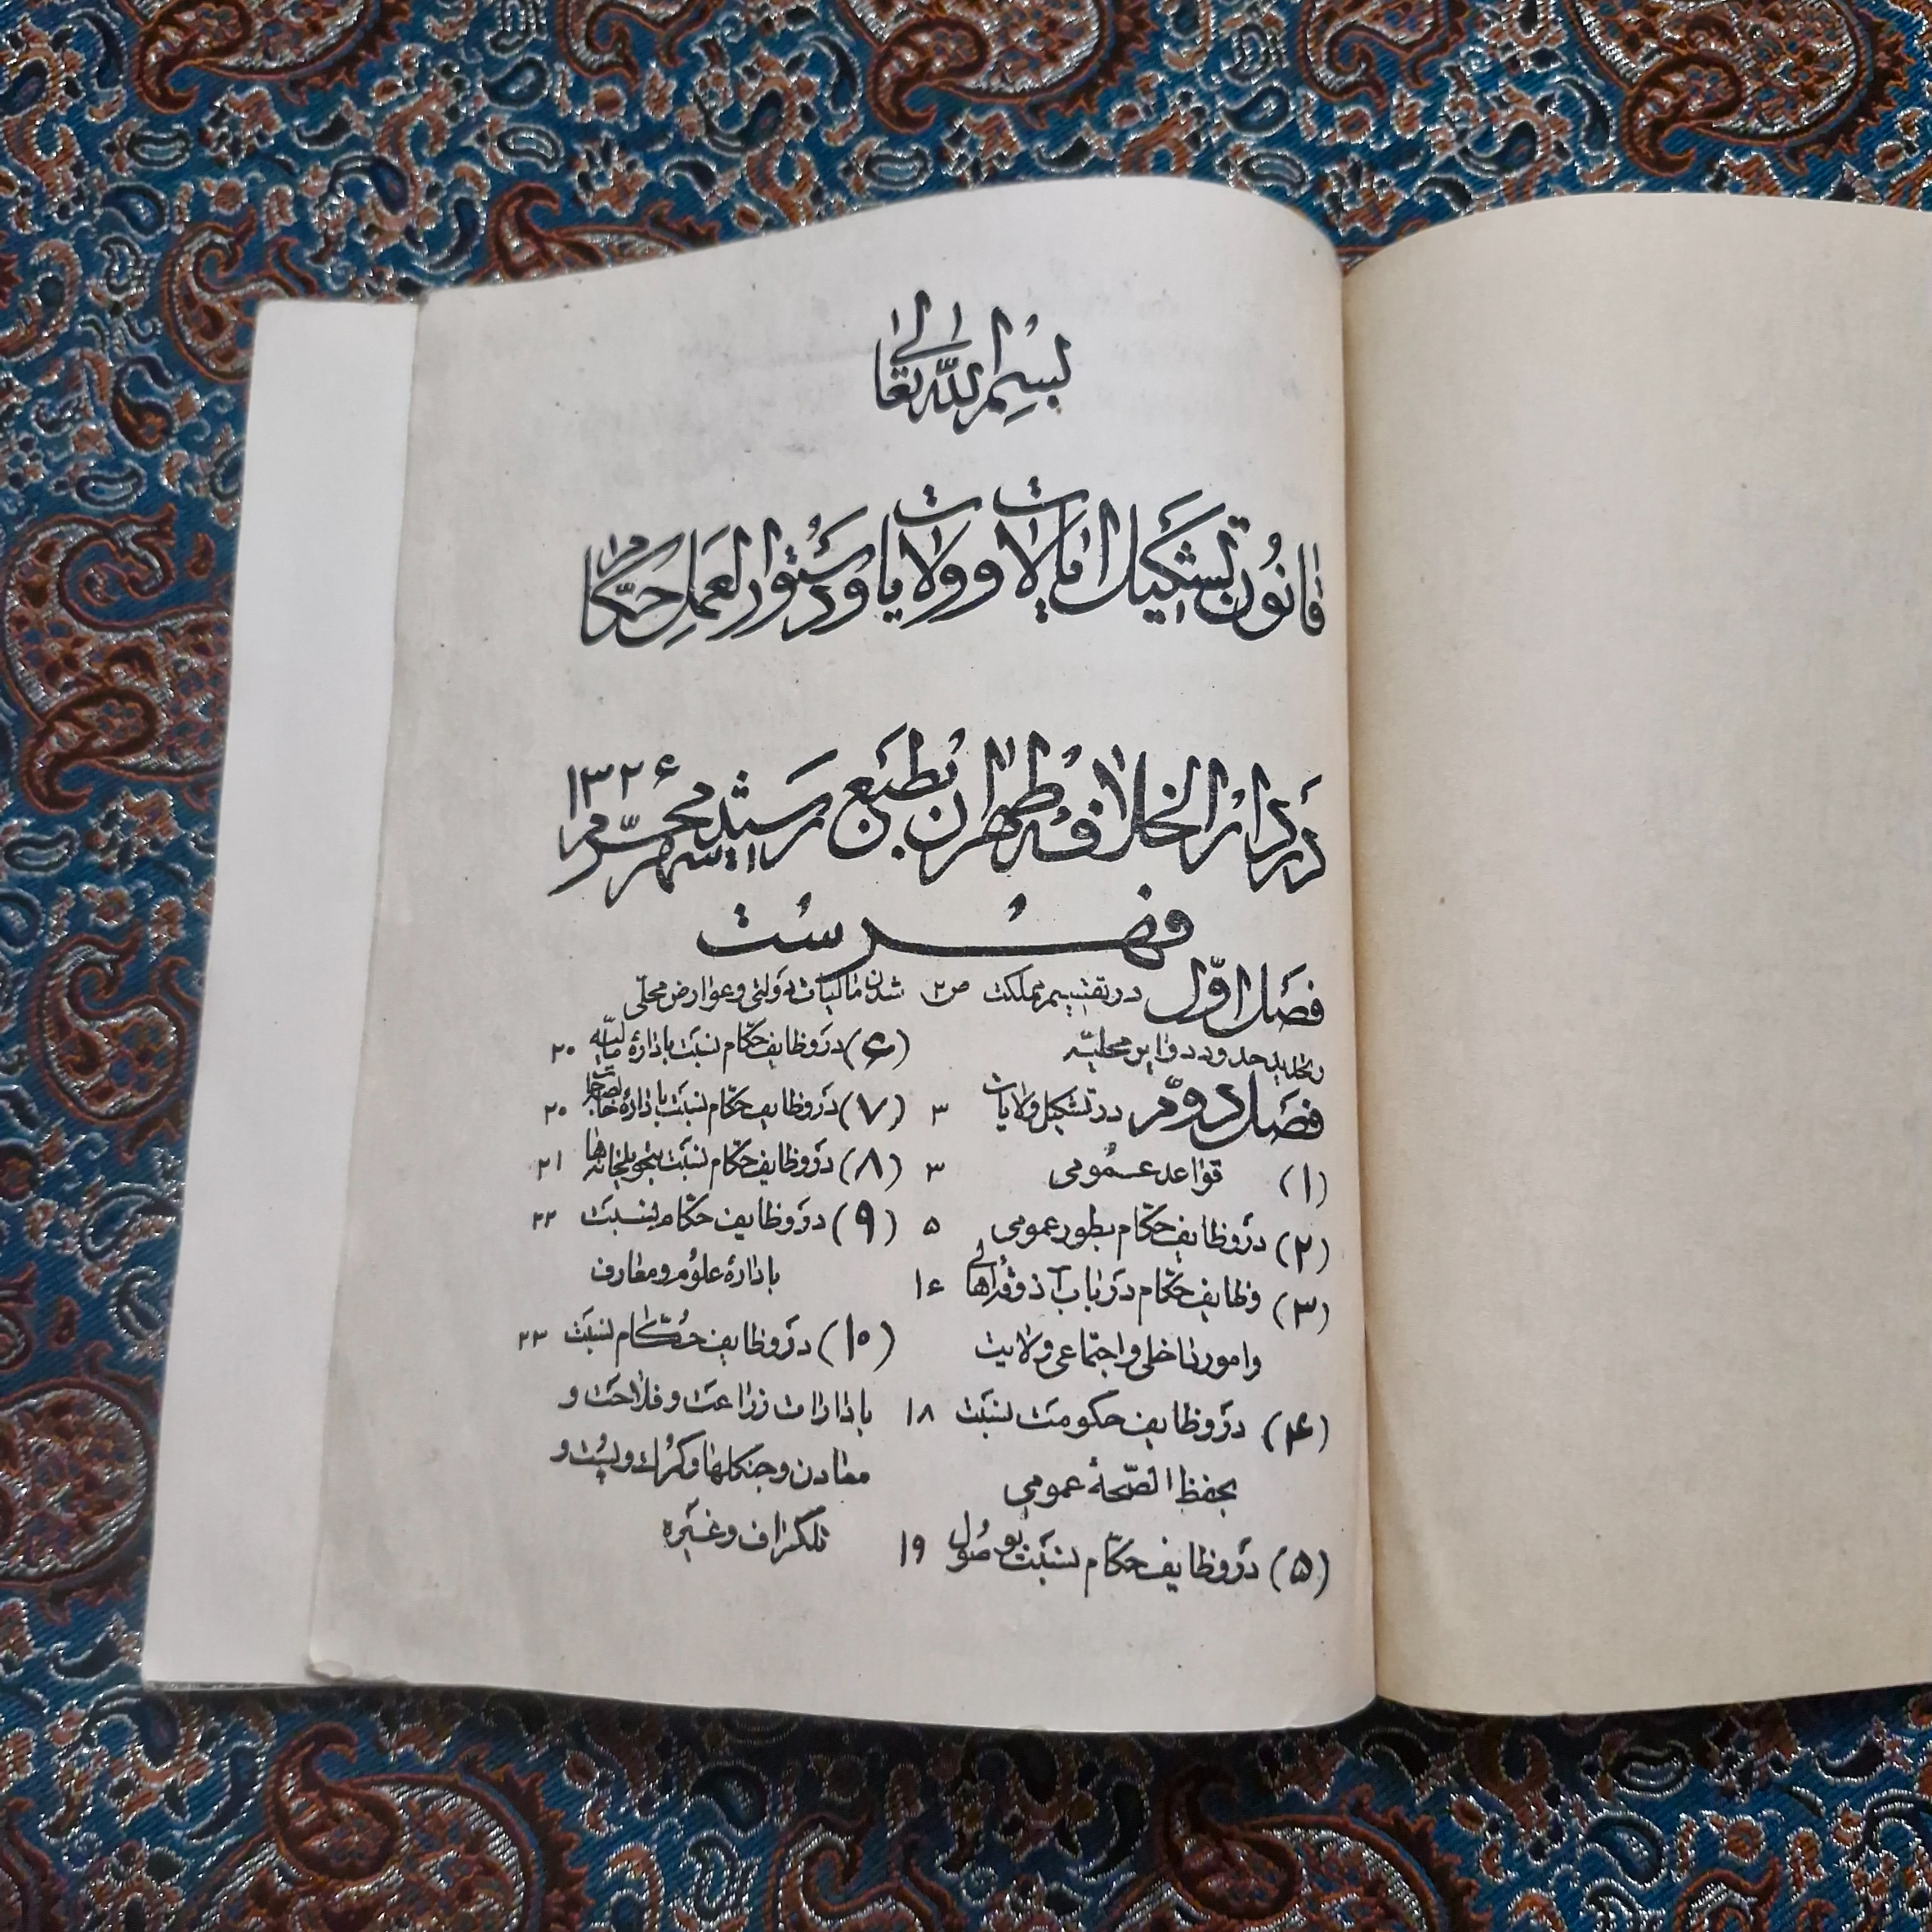 بسم الله تعالی
قانون تشکیل ایالات و ولایات و دستورالعمل حکام
در دار الخلافه طهران بطبع رسید شهر محرم ۱۳۲۶
فهرست
فصل اوّل در تقسیم مملکت ص ۲
و تحدید حدود دوایر محلیّه
فصل دوّم در تشکیل ولایات ۳
(۱) قواعد عمومی ۳
(۲) در وظایف حکّام بطور عمومی ۵
(۳) وظایف حکّام در باب آذوقه اهالی ۱۶
و امور داخلی و اجتماعی ولایت
(۴) در وظایف حکومت نسبت ۱۸
بحفظ الصّحهٔ عمومی
(۵) در وظایف حکّام نسبت بوصول ۱۹
شدن مالیات دولتی و عوارض محلّی
(۶) در وظایف حکّام نسبت باداره مالیّه ۲۰
(۷) در وظایف حکّام نسبت باداره خالصجات ۲۰
(۸) در وظایف حکّام نسبت بتحویلخانه‌ها ۲۱
(۹) در وظایف حکّام نسبت ۲۲
باداره علوم و معارف
(۱۰) در وظایف حُکّام نسبت ۲۳
بادارات زراعت و فلاحت و
معادن و جنکلها و کمرک و پُست و
تلکراف و غیره